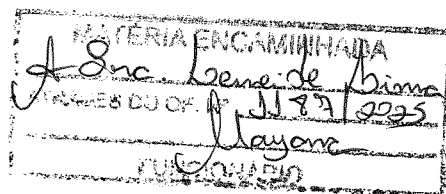 MATÉRIA ENCAMINHADA
A Snc. Leneide Lima
DO OF. Nº 1187/2025
Mayanc
FUNCIONÁRIO